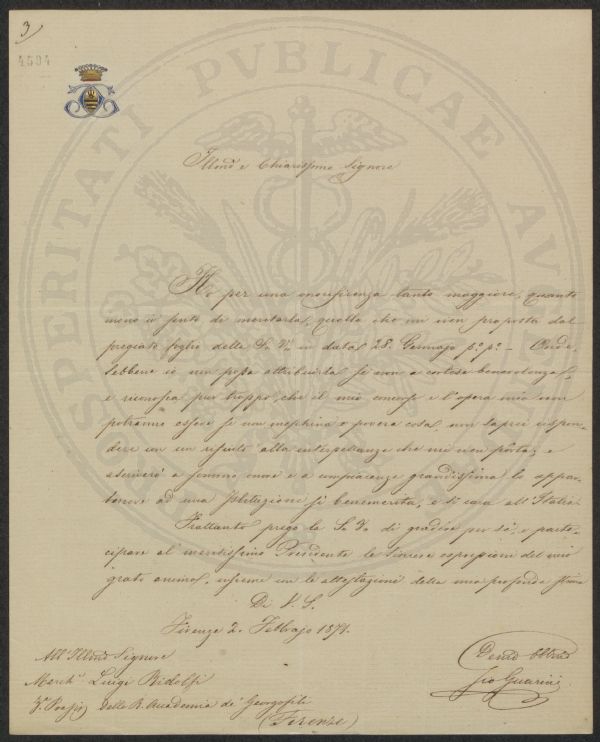 3
4504
PROSPERITATI PVBLICAE AVGENDAE
Illmo e Chiarissimo Signore
Ho per una onorificenza tanto maggiore, quanto
meno io sento di meritarla, quella che mi vien proposta dal
pregiato foglio della S. Va in data 28 Gennajo p.o p.o - Onde,
sebbene io non possa attribuirla se non a cortese benevolenza,
e riconosca pur troppo, che il mio concorso e l'opera mia non
potranno essere se non meschina e povera cosa, non saprei rispon-
dere con un rifiuto alla interpellanza che mi vien portata; e
ascriverò a sommo onore e a compiacenza grandissima lo appar-
tenere ad una Istituzione sì benemerita, e sì cara all'Italia.
Frattanto prego la S. Va di gradire per sé, e parte-
cipare al meritissimo Presidente le sincere espressioni del mio
grato animo, insieme con le attestazioni della mia profonda stima
Di V. S.
Firenze 2. Febbrajo 1871.
All'Illmo Signore
March.e Luigi Ridolfi
della R. Accademia de' Georgofili
(Firenze)
Devmo Obbmo
Gio Guarini